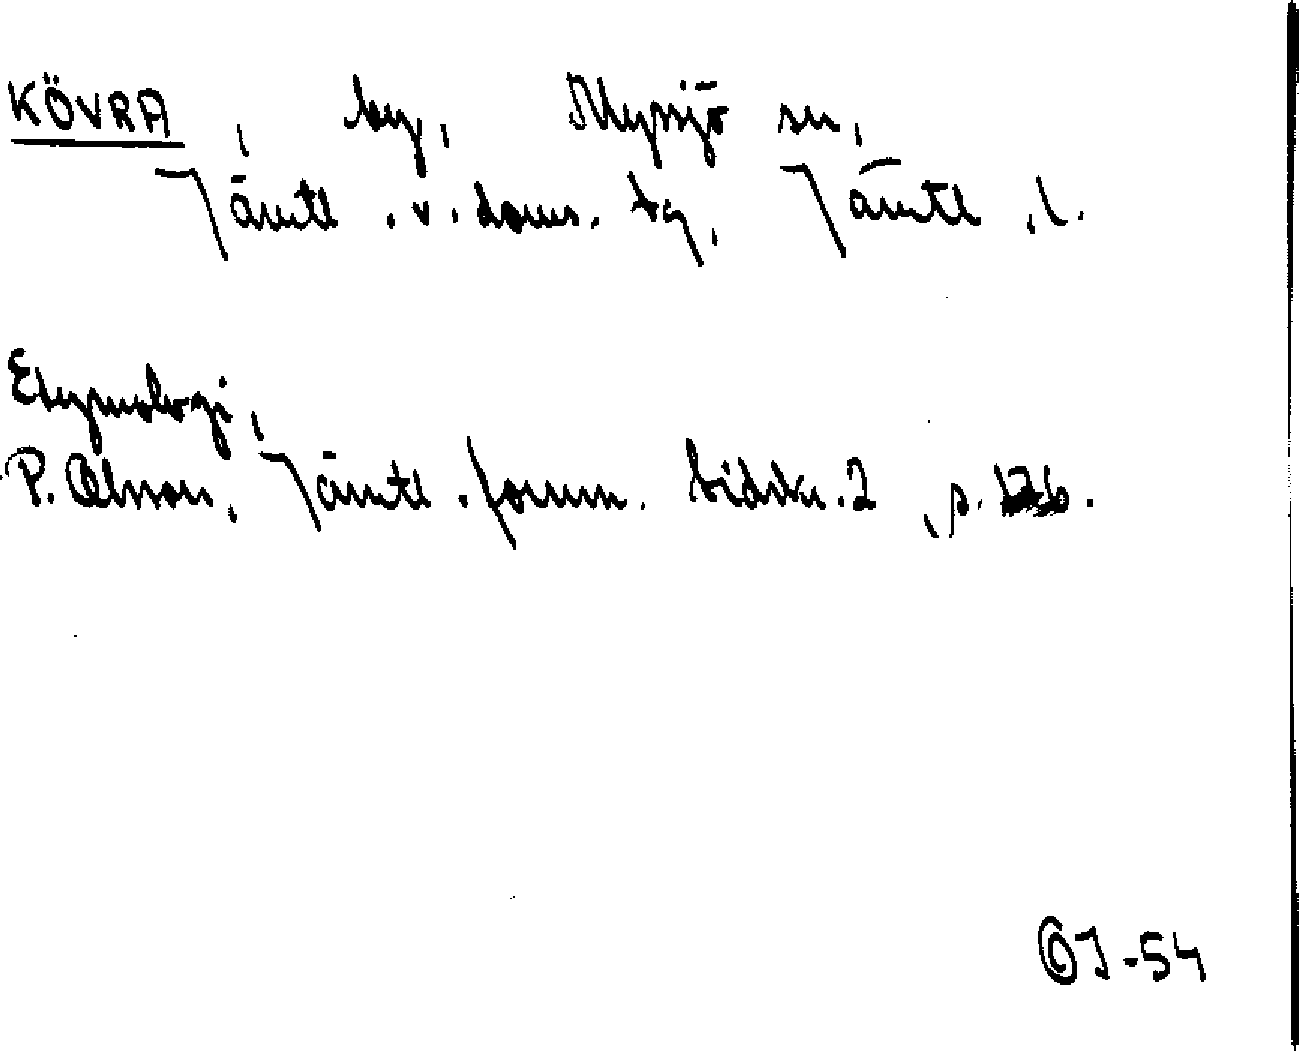 KÖVRA, by, Myssjö sn,
Jämtl. v. doms. tg, Jämtl. l.
Etymologi,
P. Olsson, Jämtl. fornm. tidskr. 2, s.
ÖJ-54